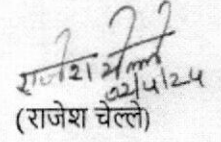 राजेश चेल्ले
02/4/24
(राजेश चेल्ले)